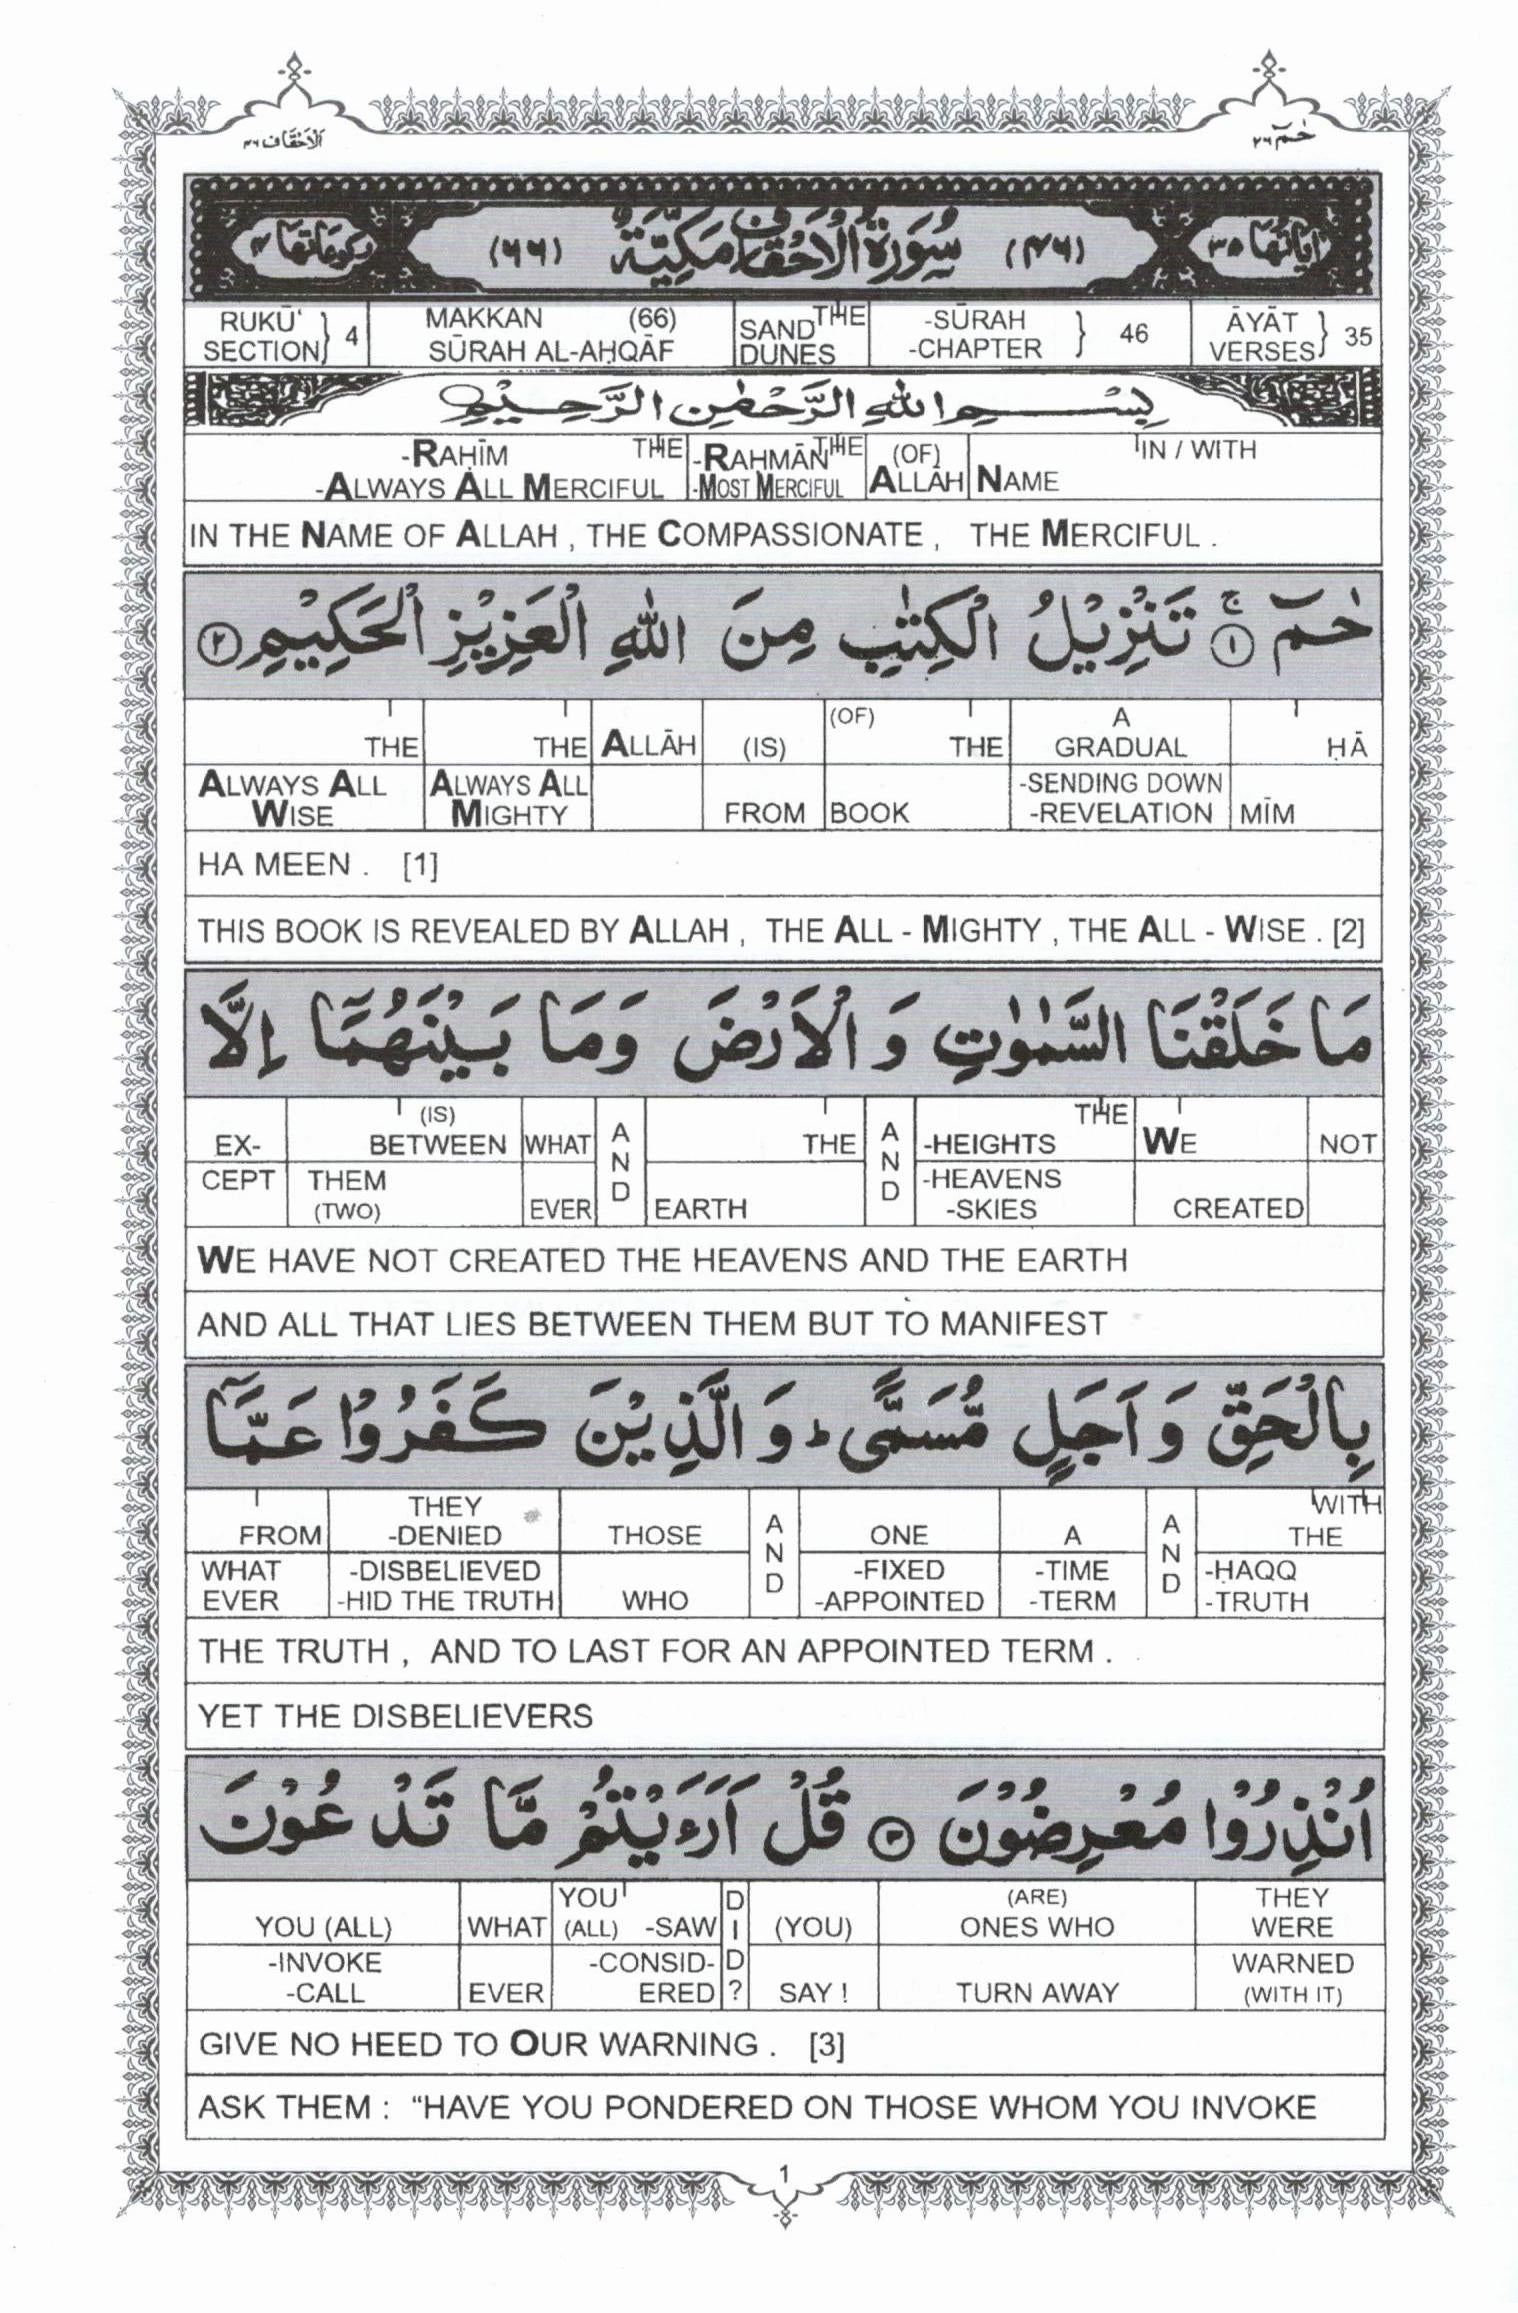 الاحقاف ٤٦
حٰمٓ ٢٦
اٰيَاتُهَا ٣٥ (٤٦) سُوْرَةُ الْاَحْقَافِ مَكِّيَّةٌ (٦٦) رُكُوْعَاتُهَا ٤
RUKŪ‘ SECTION } 4 MAKKAN (66) SŪRAH AL-AḤQĀF THE SAND DUNES -SŪRAH -CHAPTER } 46 ĀYĀT VERSES } 35
بِسْمِ اللهِ الرَّحْمٰنِ الرَّحِيْمِ
-RAḤĪM THE -RAHMĀN THE (OF) IN / WITH
-ALWAYS ALL MERCIFUL -MOST MERCIFUL ALLĀH NAME
IN THE NAME OF ALLAH , THE COMPASSIONATE , THE MERCIFUL .
حٰمٓ ۚ ١ تَنْزِيْلُ الْكِتٰبِ مِنَ اللهِ الْعَزِيْزِ الْحَكِيْمِ ٢
A
(OF)
THE THE ALLĀH (IS) THE GRADUAL ḤĀ
ALWAYS ALL ALWAYS ALL -SENDING DOWN
WISE MIGHTY FROM BOOK -REVELATION MĪM
HA MEEN . [1]
THIS BOOK IS REVEALED BY ALLAH , THE ALL - MIGHTY , THE ALL - WISE . [2]
مَا خَلَقْنَا السَّمٰوٰتِ وَ الْاَرْضَ وَمَا بَيْنَهُمَآ اِلَّا
(IS) THE
EX- BETWEEN WHAT AND THE AND -HEIGHTS WE NOT
CEPT THEM -HEAVENS
(TWO) EVER EARTH -SKIES CREATED
WE HAVE NOT CREATED THE HEAVENS AND THE EARTH
AND ALL THAT LIES BETWEEN THEM BUT TO MANIFEST
بِالْحَقِّ وَ اَجَلٍ مُّسَمًّى ؕ وَ الَّذِيْنَ كَفَرُوْا عَمَّآ
THEY WITH
FROM -DENIED THOSE AND ONE A AND THE
WHAT -DISBELIEVED -FIXED -TIME -ḤAQQ
EVER -HID THE TRUTH WHO -APPOINTED -TERM -TRUTH
THE TRUTH , AND TO LAST FOR AN APPOINTED TERM .
YET THE DISBELIEVERS
اُنْذِرُوْا مُعْرِضُوْنَ ٣ قُلْ اَرَءَيْتُمْ مَّا تَدْعُوْنَ
YOU (ARE) THEY
YOU (ALL) WHAT (ALL) -SAW DID? (YOU) ONES WHO WERE
-INVOKE -CONSID- WARNED
-CALL EVER ERED SAY ! TURN AWAY (WITH IT)
GIVE NO HEED TO OUR WARNING . [3]
ASK THEM : “HAVE YOU PONDERED ON THOSE WHOM YOU INVOKE
1